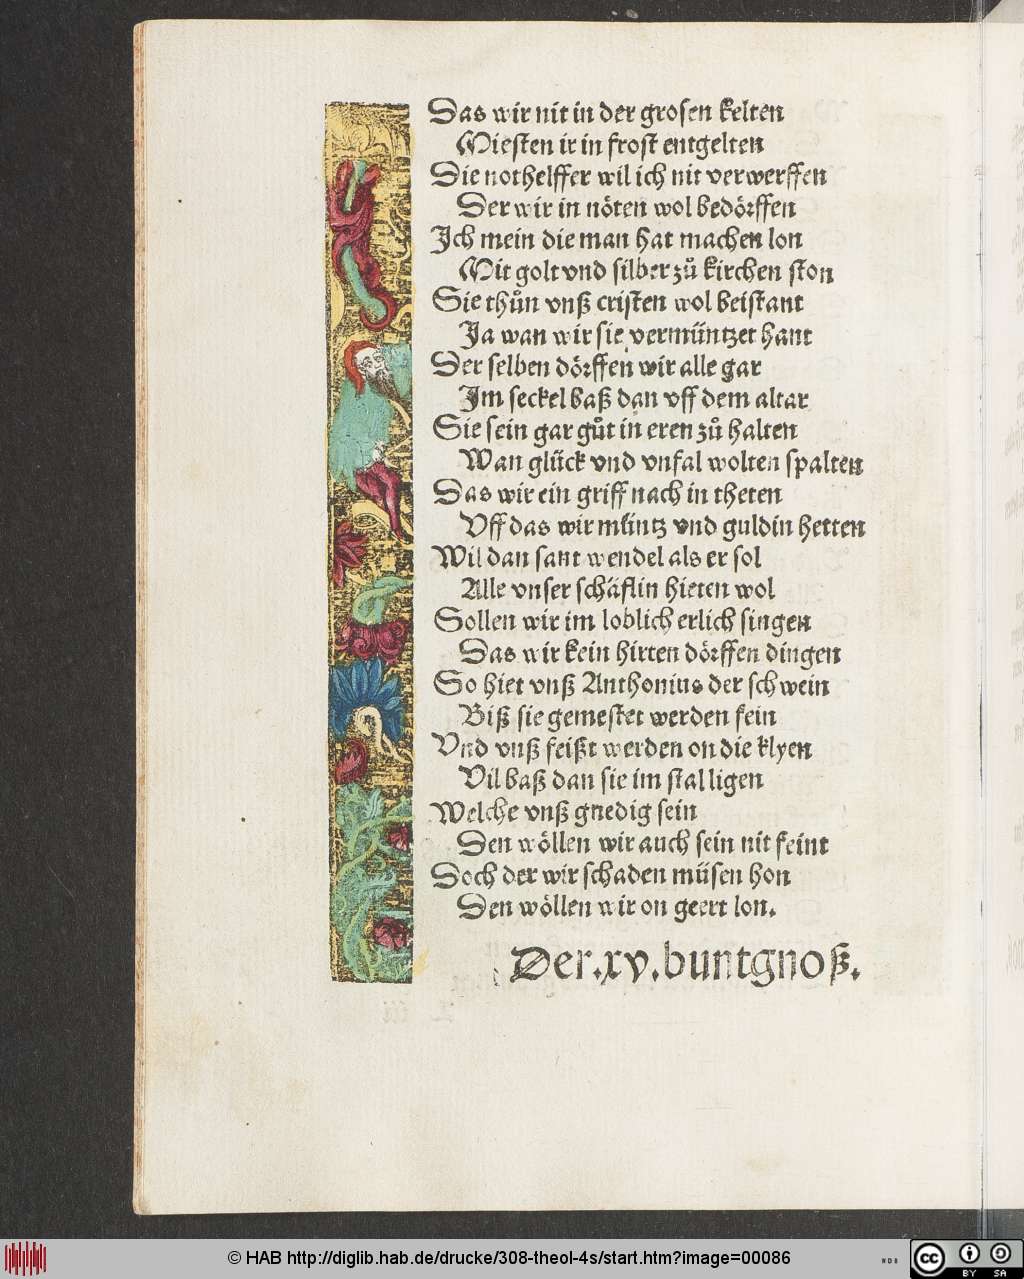 Das wir nit in der grosen kelten
Miesten ir in frost entgelten
Die nothelffer wil ich nit verwerffen
Der wir in nöten wol bedörffen
Ich mein die man hat machen lon
Mit golt vnd silber zů kirchen ston
Sie thůn vnß cristen wol beistant
Ja wan wir sie vermüntzet hant
Der selben dörffen wir alle gar
Im seckel baß dan vff dem altar
Sie sein gar gůt in eren zů halten
Wan glück vnd vnfal wolten spalten
Das wir ein griff nach in theten
Vff das wir müntz vnd guldin hetten
Wil dan sant wendel als er sol
Alle vnser schäflin hieten wol
Sollen wir im loblich erlich singen
Das wir kein hirten dörffen dingen
So hiet vnß Anthonius der schwein
Biß sie gemestet werden fein
Vnd vnß feißt werden on die klyen
Vil baß dan sie im stal ligen
Welche vnß gnedig sein
Den wöllen wir auch sein nit feint
Doch der wir schaden müsen hon
Den wöllen wir on geert lon.
Der.xv.buntgnoß.
© HAB http://diglib.hab.de/drucke/308-theol-4s/start.htm?image=00086
WDB
cc BY SA